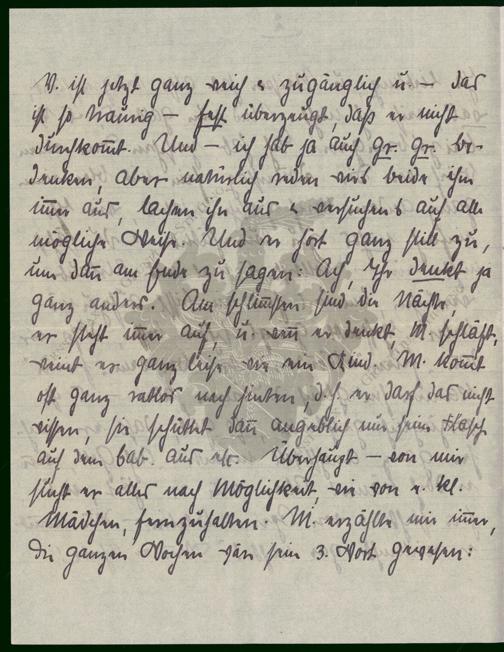 V. ist jetzt ganz weich & zugänglich u. – das
ist so traurig – fest überzeugt, daß er nicht
durchkom̅t. Und – ich hab ja auch gr. gr. be-
denken, aber natürlich reden wir's beide ihm
im̅er aus, lachen ihn aus & versuchen's auch alle
mögliche Weise. Und er hört ganz still zu,
um dan̅ am Ende zu sagen: Ach, Ihr denkt ja
ganz anders. Am schlim̅sten sind die Nächte,
er steht im̅er auf, u. wen̅ er denkt M. schläft,
weint er ganz leise wie ein Kind. M. kom̅t
oft ganz ratlos nach hinten, d.h. er darf das nicht
wissen, sie schüttet dan̅ angeblich nur sein Flasch
auf dem Cab. aus etc. Überhaupt – von mir
sucht er alles nach Möglichkeit, wie von e. kl.
Mädchen, fernzuhalten. M. erzählte mir im̅er,
die ganzen Wochen wär sein 3. Wort gewesen: